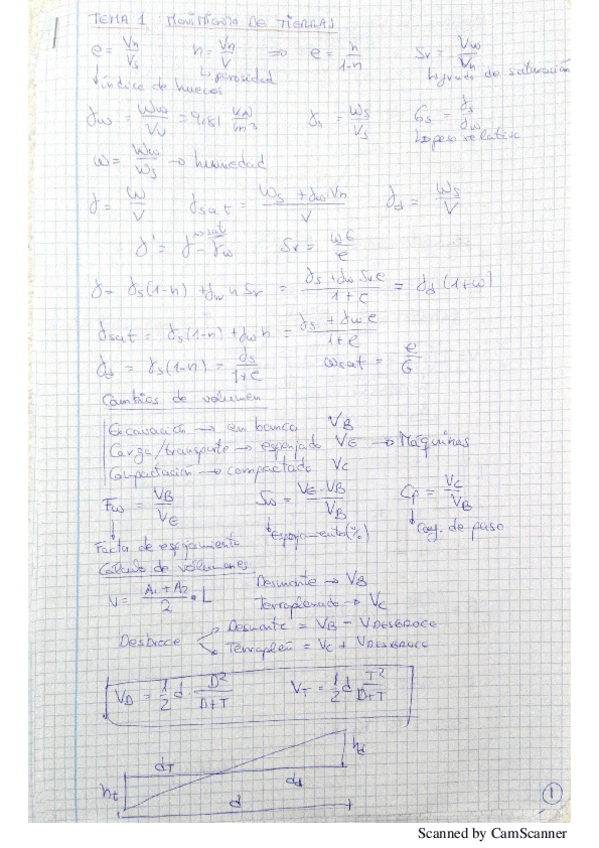 TEMA 1: MOVIMIENTO DE TIERRAS
e = Vh/Vs n = Vh/V ⇒ e = n/1-n Sr = Vw/Vh
↓ índice de huecos ↳ porosidad ↳ grado de saturación
γw = Ww/Vw = 9,81 kN/m3 γs = Ws/Vs Gs = γs/γw
↳ peso relativo
ω = Ww/Ws → humedad
γ = W/V γsat = Ws + γw·Vh/V γd = Ws/V
γ' = γ - γw Sr = ωG/e
γ = γs(1-n) + γw n Sr = γs + γw Sr e/1+e = γd (1+ω)
γsat = γs(1-n) + γw n = γs + γw e/1+e
γd = γs(1-n) = γs/1+e ωsat = e/G
Cambios de volumen
Excavación → en banco VB
Carga/transporte → esponjado VE → Máquinas
Compactación → compactado VC
Fw = VB/VE Sw = VE-VB/VB Cp = VC/VB
↓ Factor de esponjamiento ↓ esponjamiento (%) ↓ Coef. de paso
Cálculo de volúmenes
V = A1 + A2/2 · L Desmonte → VB
Terraplenado → VC
Desbroce Desmonte = VB - VDESBROCE
Terraplén = VC + VDESBROCE
VD = 1/2 d · D²/D+T VT = 1/2 d T²/D+T
hd
dT
dd
ht
d
1
Scanned by CamScanner